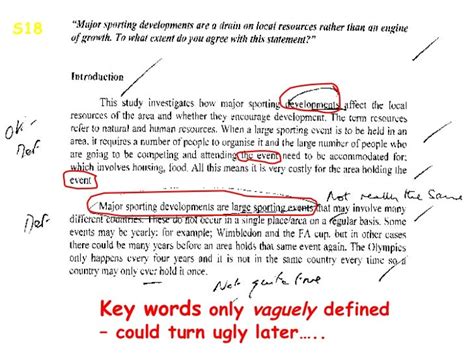 S18
"Major sporting developments are a drain on local resources rather than an engine
of growth. To what extent do you agree with this statement?"
Introduction
This study investigates how major sporting developments affect the local
resources of the area and whether they encourage development. The term resources
refer to natural and human resources. When a large sporting event is to be held in an
area, it requires a number of people to organise it and the large number of people who
are going to be competing and attending the event need to be accommodated for;
which involves housing, food. All this means it is very costly for the area holding the
event
Not really the same
Major sporting developments are large sporting events that may involve many
different countries. These do not occur in a single place/area on a regular basis. Some
events may be yearly: for example; Wimbledon and the FA cup, but in other cases
there could be many years before an area holds that same event again. The Olympics
only happens every four years and it is not in the same country every time so a
country may only ever hold it once.
Not quite true
Key words only vaguely defined
– could turn ugly later…..